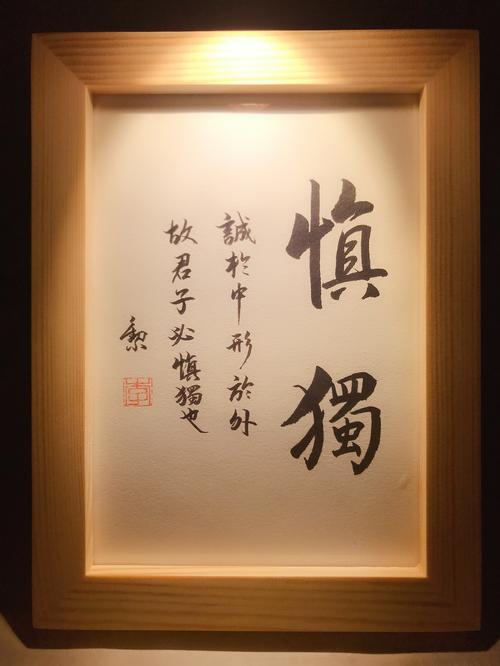 慎獨
誠於中形於外
故君子必慎獨也